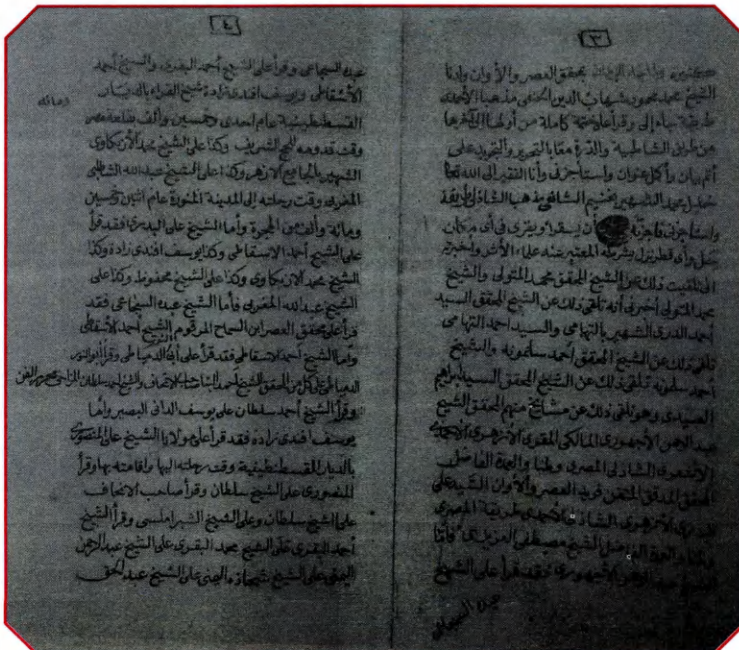 [٣]
بحقق العصر والأوان وإننا
الشيخ محمد محمود شهاب الدين الحنفى مذهبا الأحمدى
طريقة جاء إلى وقرأ على ختمة كاملة من أولها إلى آخرها
من طريق الشاطبية والدرة معا بالتحرير والتجويد على
أتم بيان وأكمل عنوان واستأجزنى وأنا الفقير إلى الله تعالى
خليل محمد الشهير بغنيم الشافعى مذهبا الشاذلى طريقة
واستأجزنى فأجزته أن يقرأ ويقرى فى أى مكان
حل وأى قطر نزل بشرطه المعتبر عند علماء الأثر وأخبرته
أنى تلقيت ذلك عن الشيخ المحقق محمد المتولى والشيخ
محمد المتولى أخبرنى أنه تلقى ذلك عن الشيخ المحقق السيد
أحمد الدرى الشهير بالتهامى والسيد أحمد التهامى
تلقى ذلك عن الشيخ المحقق أحمد سلمونه والشيخ
أحمد سلمونة تلقى ذلك عن الشيخ المحقق السيد ابراهيم
العبيدى وهو تلقى ذلك عن مشايخ منهم المحقق الشيخ
عبد الرحمن الأجهورى المالكى المقرى الأزهرى الأحمدى
الأشعرى الشاذلى المصرى وطنا والعمدة الفاضل
المحقق المدقق المتقن فريد العصر والأوان السيد على
البدرى الأزهرى الشاذلى الأحمدى طريقة المصرى
وطنا والعمدة الفاضل الشيخ مصطفى العزيزى فأما
الشيخ عبد الرحمن الأجهورى فقد قرأ على الشيخ
عبده السجاعى
[٤]
عبده السجاعى وقرأ على الشيخ أحمد البقرى والشيخ أحمد
الأسقاطى ويوسف افندى زادة شيخ القراء بالديار
القسطنطينية عام احدى وخمسين وألف بقلعة مصر
ومائة
وقت قدومه للحج الشريف وكذا على الشيخ محمد الأزبكاوى
الشهير بالجامع الأزهر وكذا على الشيخ عبد الله الشماطى
المغربى وقت رحلته إلى المدينة المنورة عام اثنين وخمسين
ومائة وألف من الهجرة وأما الشيخ على البدرى فقد قرأ
على الشيخ أحمد الاسقاطى وكذا يوسف افندى زادة وكذا
الشيخ محمد الازبكاوى وكذا على الشيخ محفوظ وكذا على
الشيخ عبد الله المغربى فأما الشيخ عبده السجاعى فقد
قرأ على محقق العصر ابن السماح المرقوم الشيخ أحمد الأسقاطى
وأما الشيخ أحمد الاسقاطى فقد قرأ على أبى النور الدمياطى وقرأ أبو النور
الدمياطى على كل من المحقق الشيخ أحمد البنا صاحب الإتحاف والشيخ أحمد سلطان المزاحى محرر الفن
وقرأ الشيخ أحمد سلطان على يوسف الدانى البصير وأما
يوسف افندى زادة فقد قرأ على مولايا الشيخ على المنصورى
بالديار القسطنطينية وقت رحلته إليها واقامته بها وقرأ
المنصورى على الشيخ سلطان وقرأ صاحب الاتحاف
على الشيخ سلطان وعلى الشيخ الشبراملسى وقرأ الشيخ
أحمد البقرى على الشيخ محمد البقرى على الشيخ عبد الرحمن
اليمنى على الشيخ شحاذه اليمنى على الشيخ عبد الحق